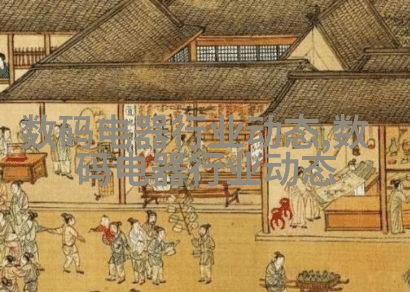 数码电器行业动态,数
码电器行业动态